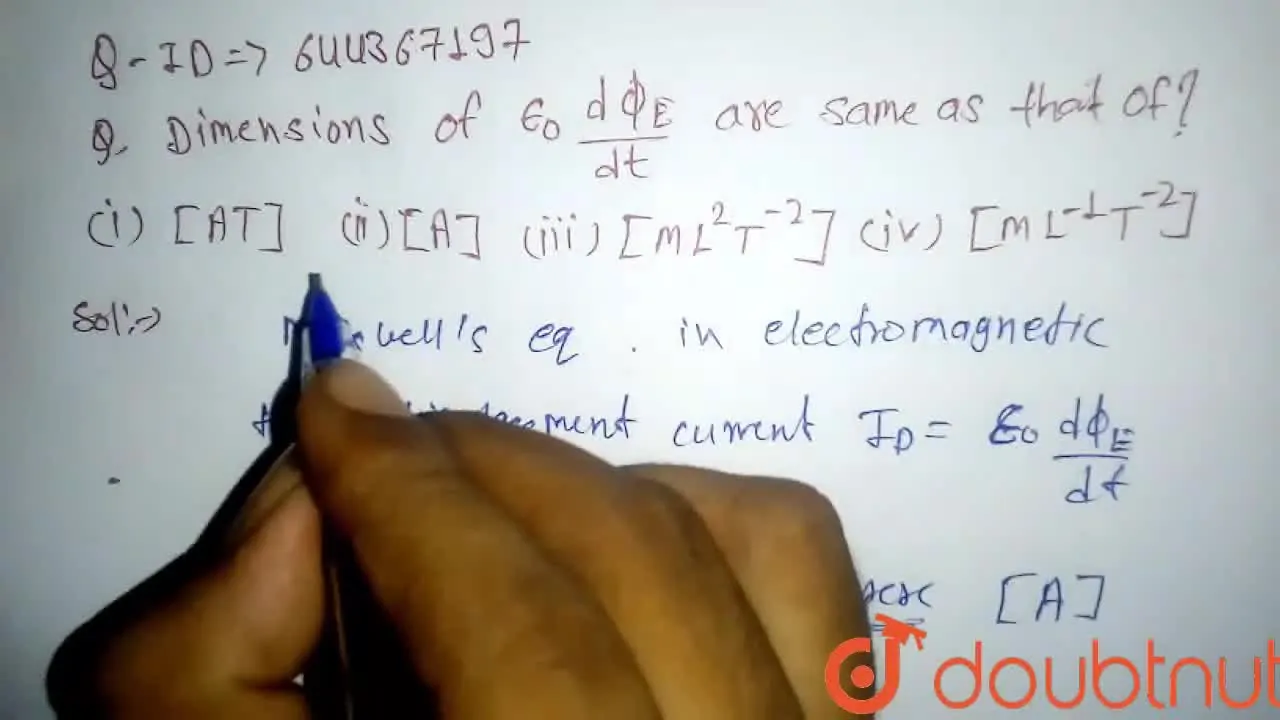 Q - ID => 644367197
Q. Dimensions of ε₀ dϕ_E/dt are same as that of?
(i) [AT] (ii) [A] (iii) [ML²T⁻²] (iv) [ML⁻¹T⁻²]
Solⁿ:->
eq . in electromagnetic
current I_D = ε₀ dϕ_E/dt
[A]
doubtnut